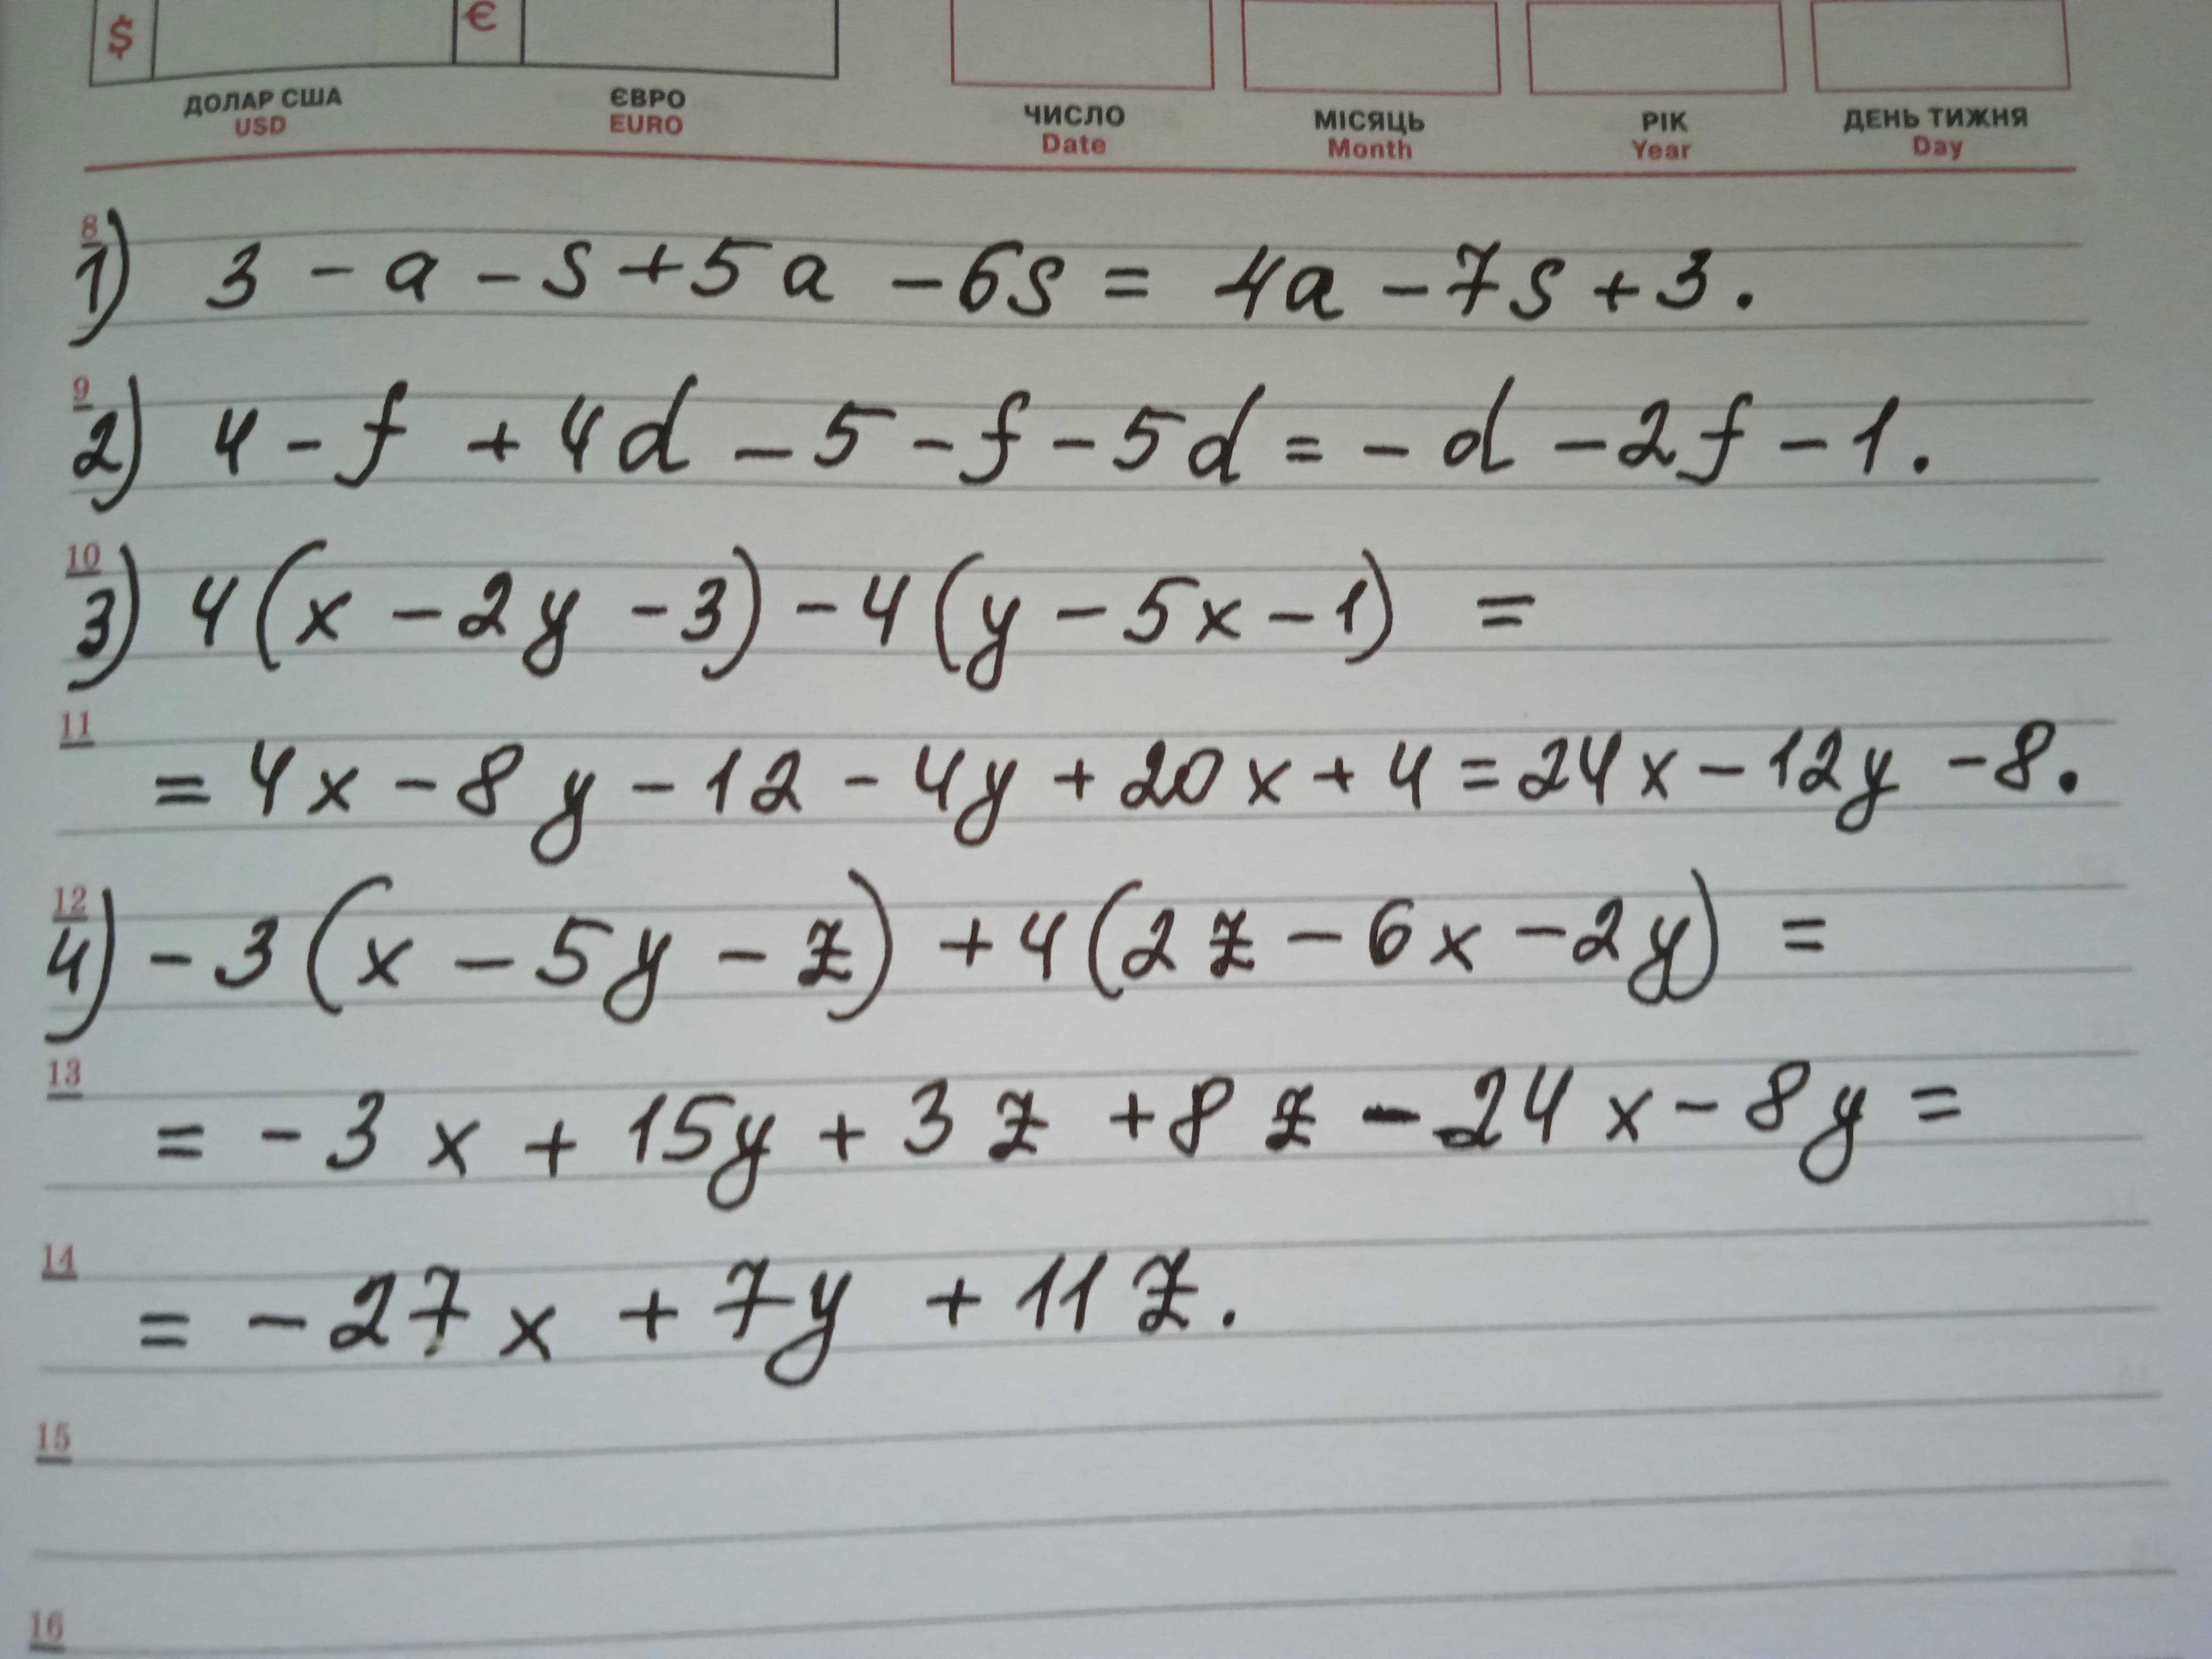 $ €
ДОЛАР США ЄВРО ЧИСЛО МІСЯЦЬ РІК ДЕНЬ ТИЖНЯ
USD EURO Date Month Year Day
8
1) 3 - a - s + 5a - 6s = 4a - 7s + 3.
9
2) 4 - f + 4d - 5 - f - 5d = - d - 2f - 1.
10
3) 4(x - 2y - 3) - 4(y - 5x - 1) =
11
= 4x - 8y - 12 - 4y + 20x + 4 = 24x - 12y - 8.
12
4) - 3(x - 5y - z) + 4(2z - 6x - 2y) =
13
= - 3x + 15y + 3z + 8z - 24x - 8y =
14
= - 27x + 7y + 11z.
15
16